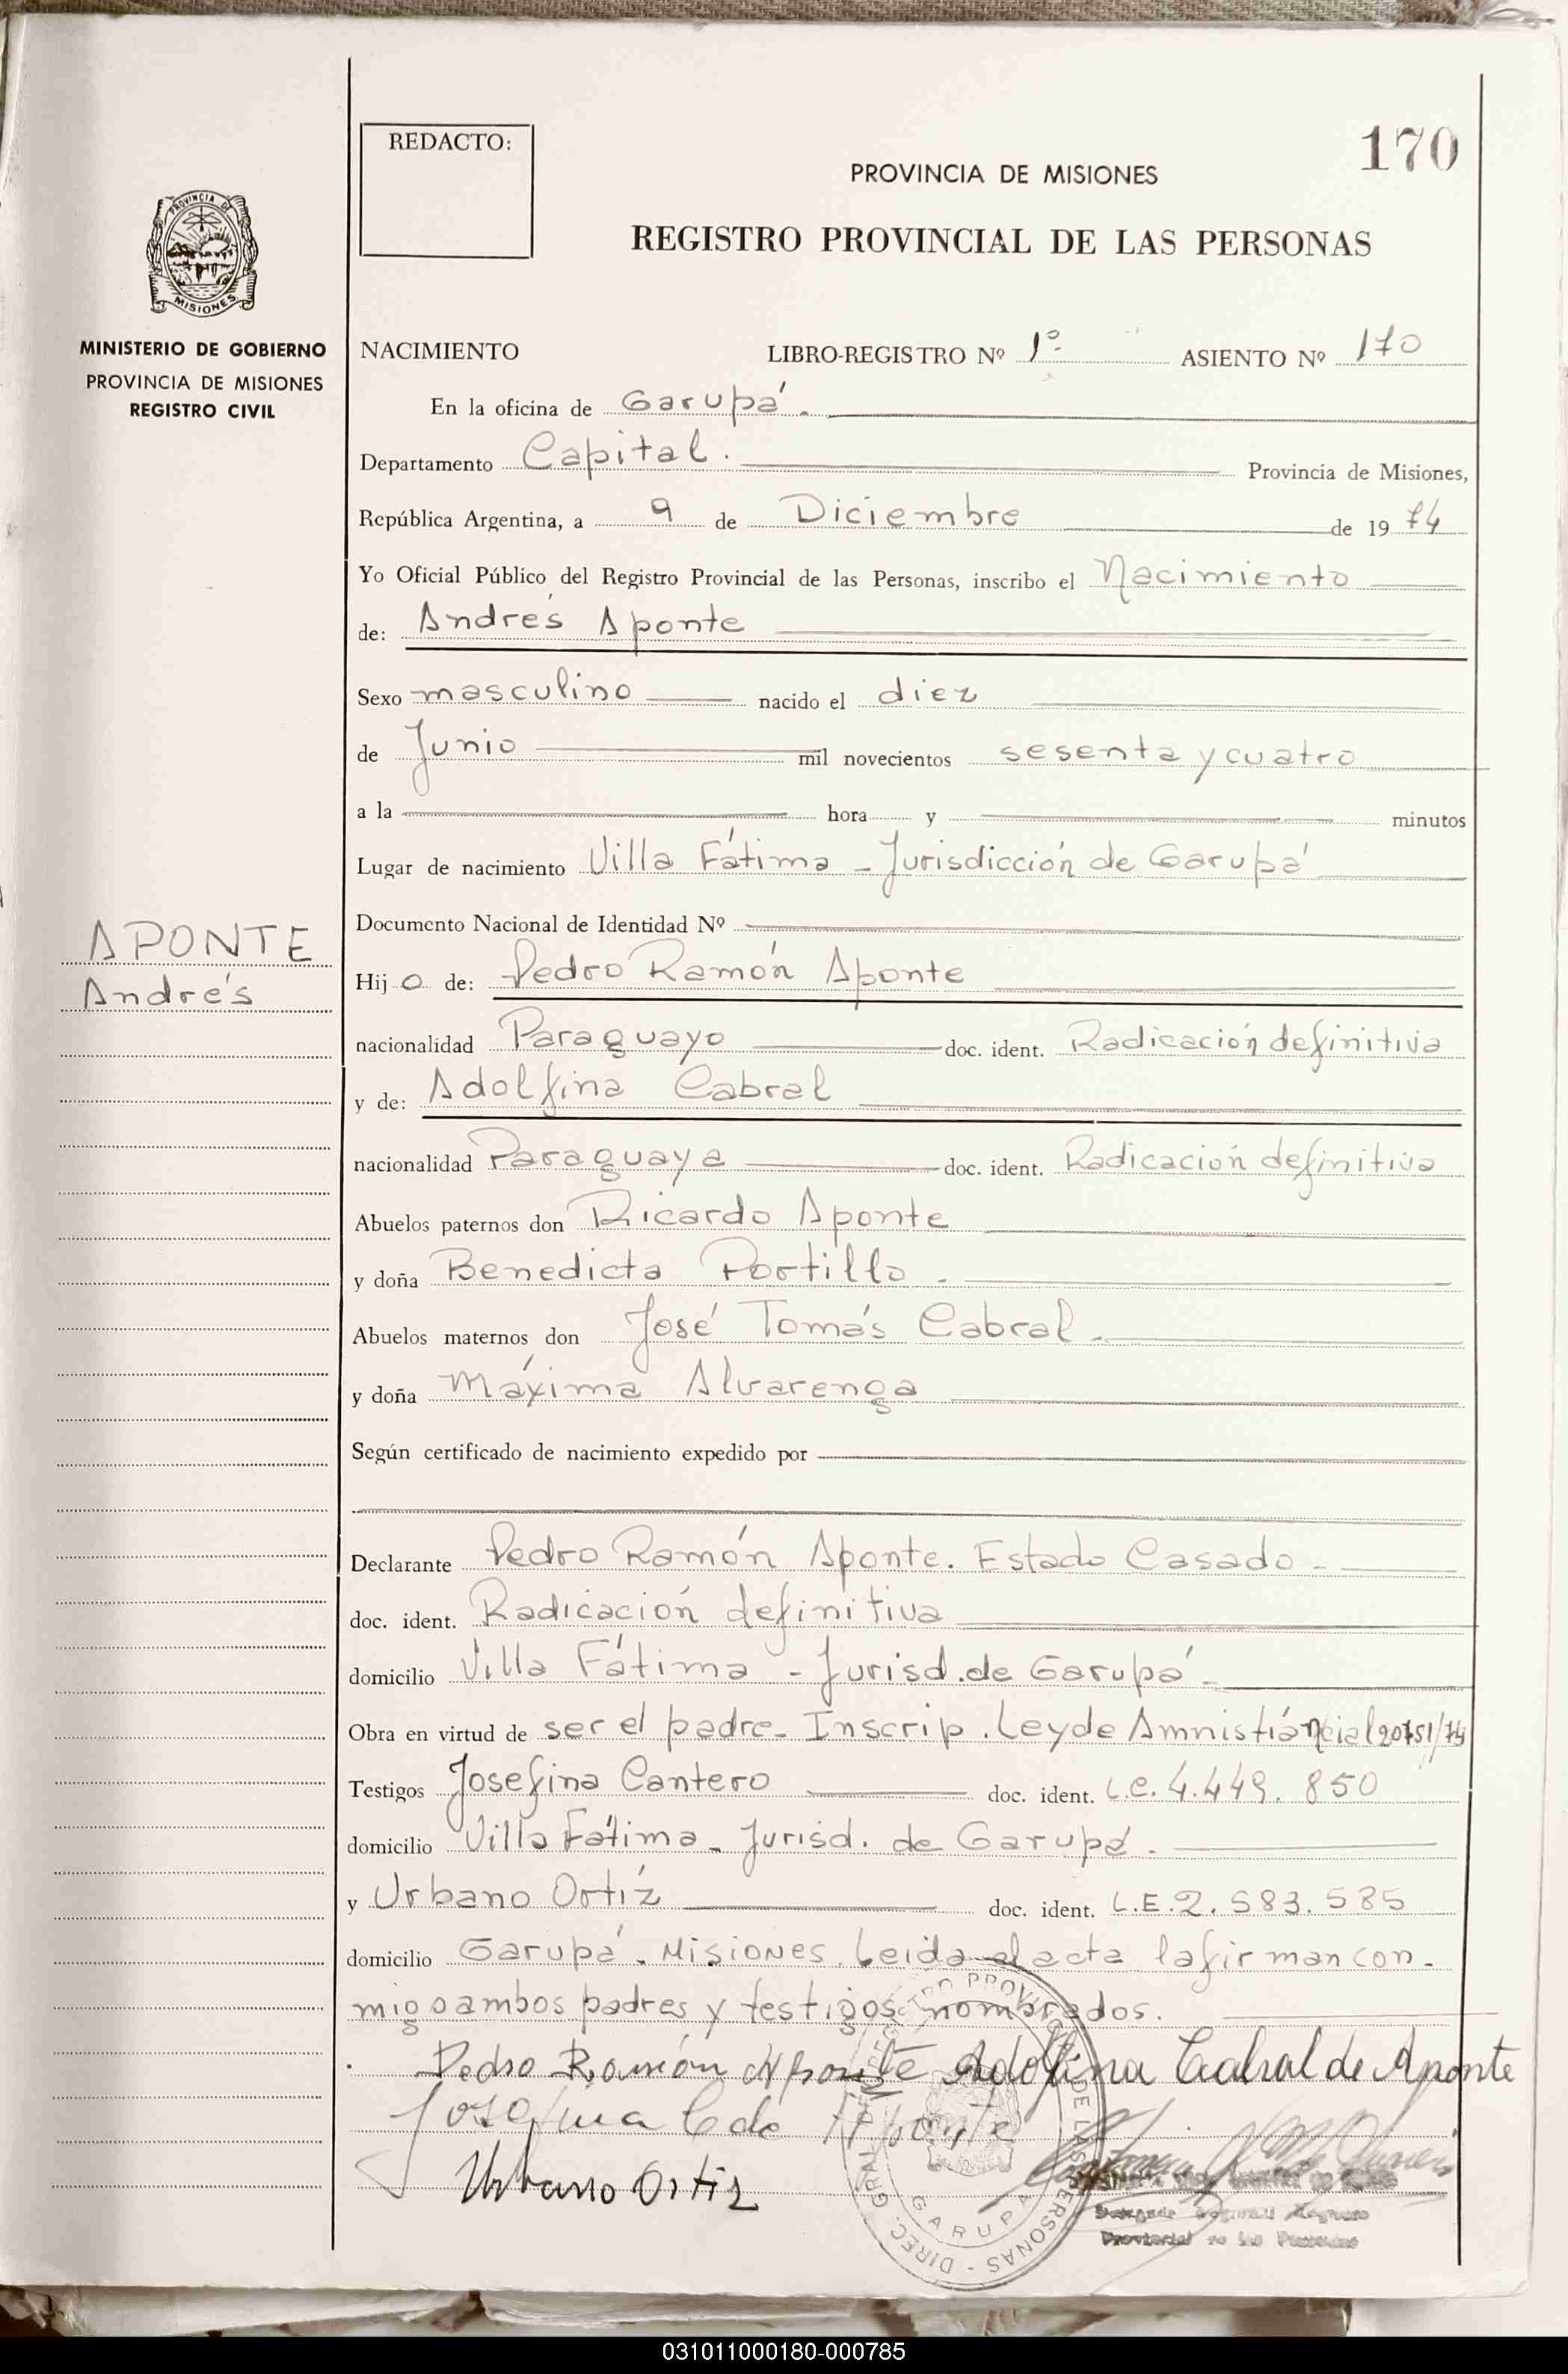 REDACTO:
170
PROVINCIA DE MISIONES
REGISTRO PROVINCIAL DE LAS PERSONAS
PROVINCIA DE
MISIONES
MINISTERIO DE GOBIERNO
PROVINCIA DE MISIONES
REGISTRO CIVIL
NACIMIENTO LIBRO-REGISTRO Nº 1º ASIENTO Nº 170
En la oficina de Garupá.
Departamento Capital. Provincia de Misiones,
República Argentina, a 9 de Diciembre de 1974
Yo Oficial Público del Registro Provincial de las Personas, inscribo el Nacimiento
de: Andrés Aponte
Sexo masculino nacido el diez
de Junio mil novecientos sesenta y cuatro
a la hora y minutos
Lugar de nacimiento Villa Fátima - Jurisdicción de Garupá
APONTE
Andrés
Documento Nacional de Identidad Nº
Hijo de: Pedro Ramón Aponte
nacionalidad Paraguayo doc. ident. Radicación definitiva
y de: Adolfina Cabral
nacionalidad Paraguaya doc. ident. Radicación definitiva
Abuelos paternos don Ricardo Aponte
y doña Benedicta Portillo.
Abuelos maternos don José Tomás Cabral.
y doña Máxima Alvarenga
Según certificado de nacimiento expedido por
Declarante Pedro Ramón Aponte. Estado Casado -
doc. ident. Radicación definitiva
domicilio Villa Fátima - Jurisd. de Garupá.
Obra en virtud de ser el padre. Inscrip. Ley de Amnistía 20751/74
Testigos Josefina Cantero doc. ident. L.C. 4.449.850
domicilio Villa Fátima - Jurisd. de Garupá.
y Urbano Ortíz doc. ident. L.E. 2.583.585
domicilio Garupá. Misiones. Leida el acta la firman con-
migo ambos padres y testigos nombrados.
Pedro Ramón Aponte Adolfina Cabral de Aponte
Josefina C de Aponte
Urbano Ortiz
DIREC. GRAL. DEL REGISTRO PROVINCIAL DE LAS PERSONAS - GARUPA
Provincial de las Personas
031011000180-000785